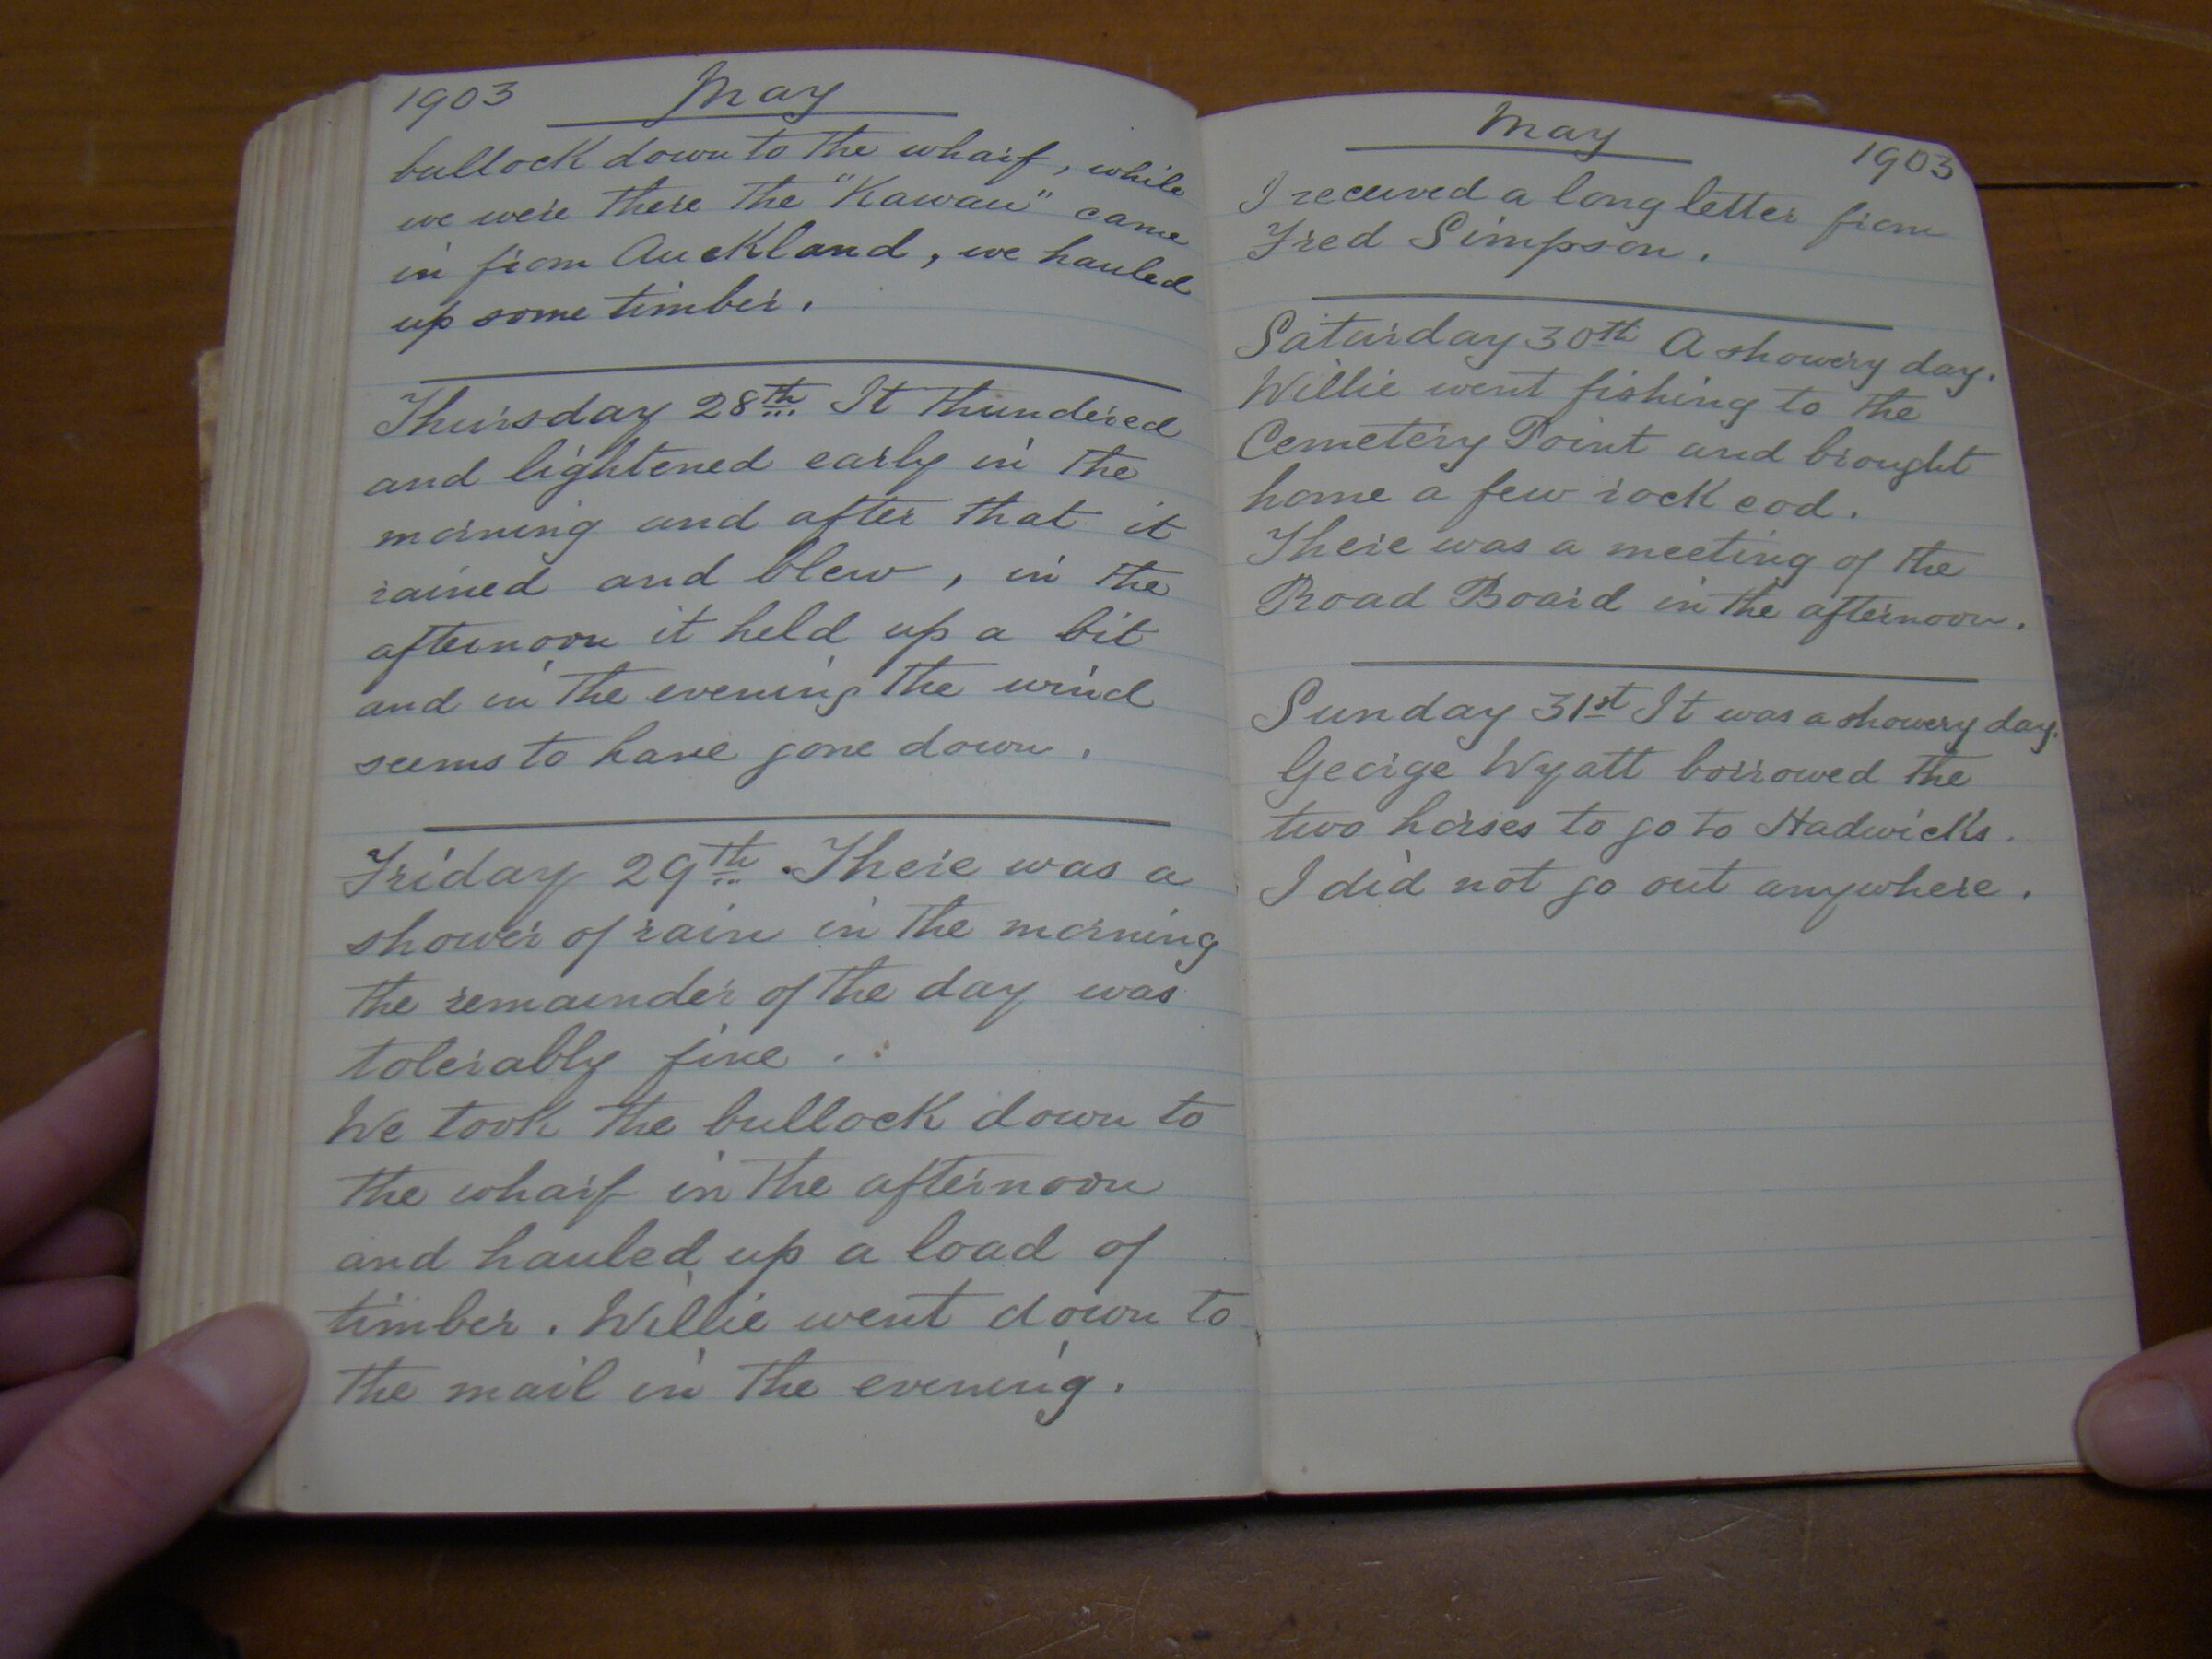 1903 May
bullock down to the wharf, while
we were there the "Kawau" came
in from Auckland, we hauled
up some timber.
Thursday 28th It thundered
and lightened early in the
morning and after that it
rained and blew, in the
afternoon it held up a bit
and in the evening the wind
seems to have gone down.
Friday 29th. There was a
shower of rain in the morning
the remainder of the day was
tolerably fine.
We took the bullock down to
the wharf in the afternoon
and hauled up a load of
timber. Willie went down to
the mail in the evening.
May 1903
I received a long letter from
Fred Simpson.
Saturday 30th A showery day.
Willie went fishing to the
Cemetery Point and brought
home a few rock cod.
There was a meeting of the
Road Board in the afternoon.
Sunday 31st It was a showery day.
George Wyatt borrowed the
two horses to go to Hadwicks.
I did not go out anywhere.